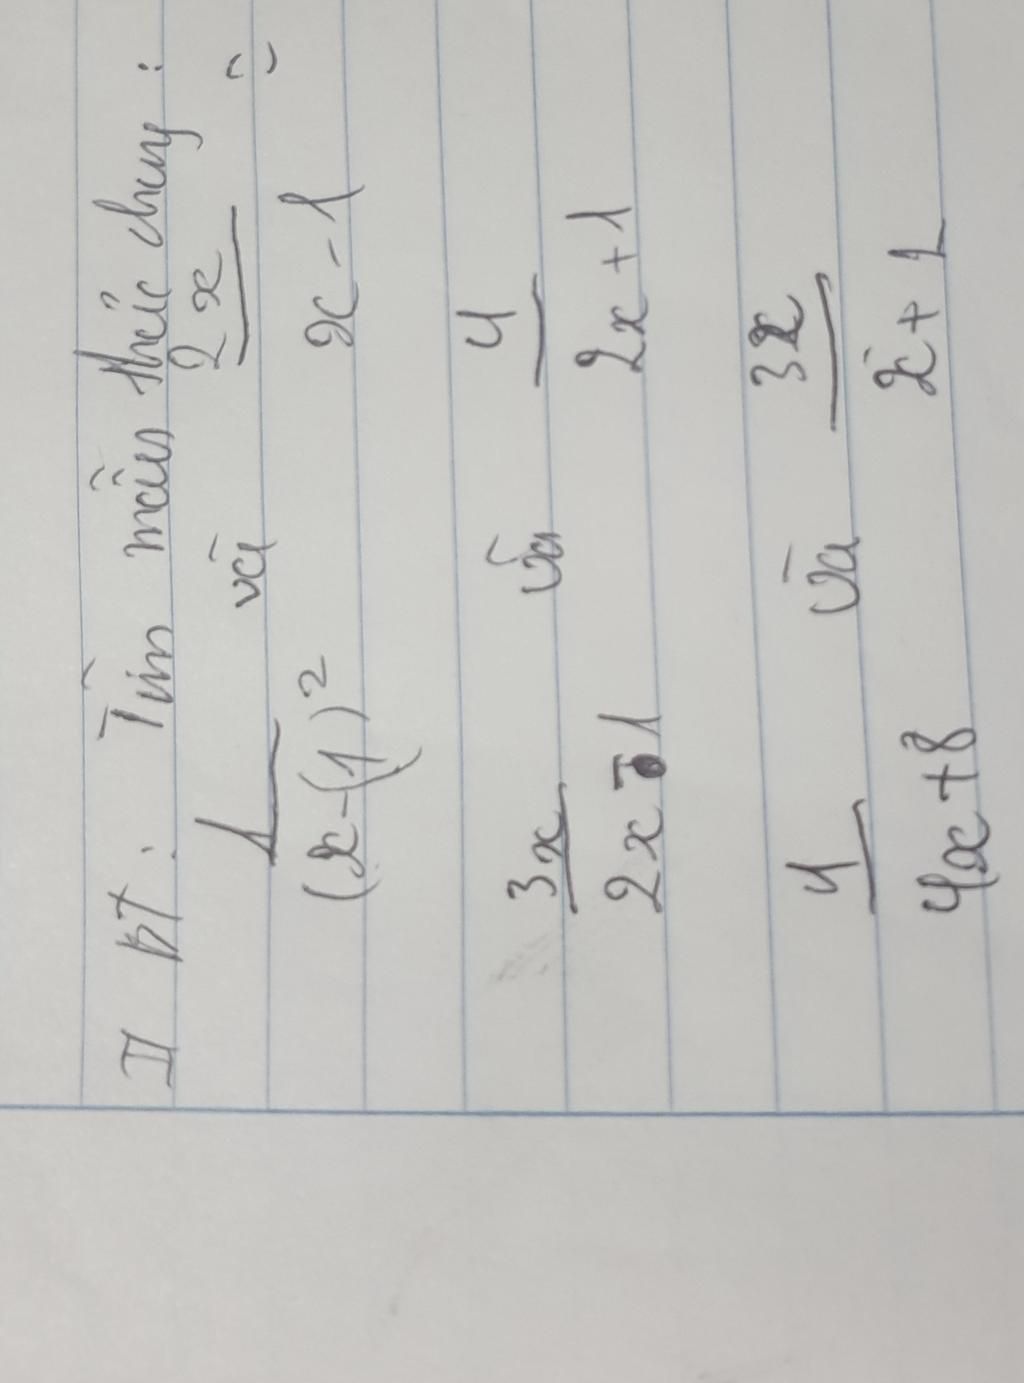 II BT : Tìm mẫu thức chung :
1 và 2x
(x-1)² x-1
3x và 4
2x-1 2x+1
4 và 3x
4x+8 x+1